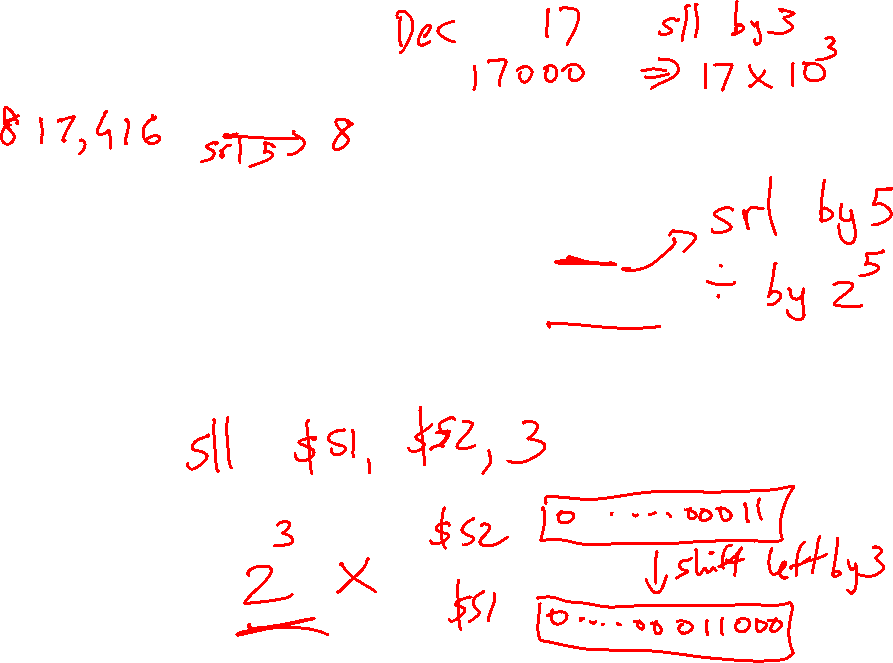 Dec 17 sll by 3
17000 ⇒ 17 × 10³
817,416 srl 5 → 8
srl by 5
÷ by 2⁵
sll $s1, $s2, 3
$s2 0 ..... 00011
2³ × ↓ shift left by 3
$s1 0 .... 00 011000